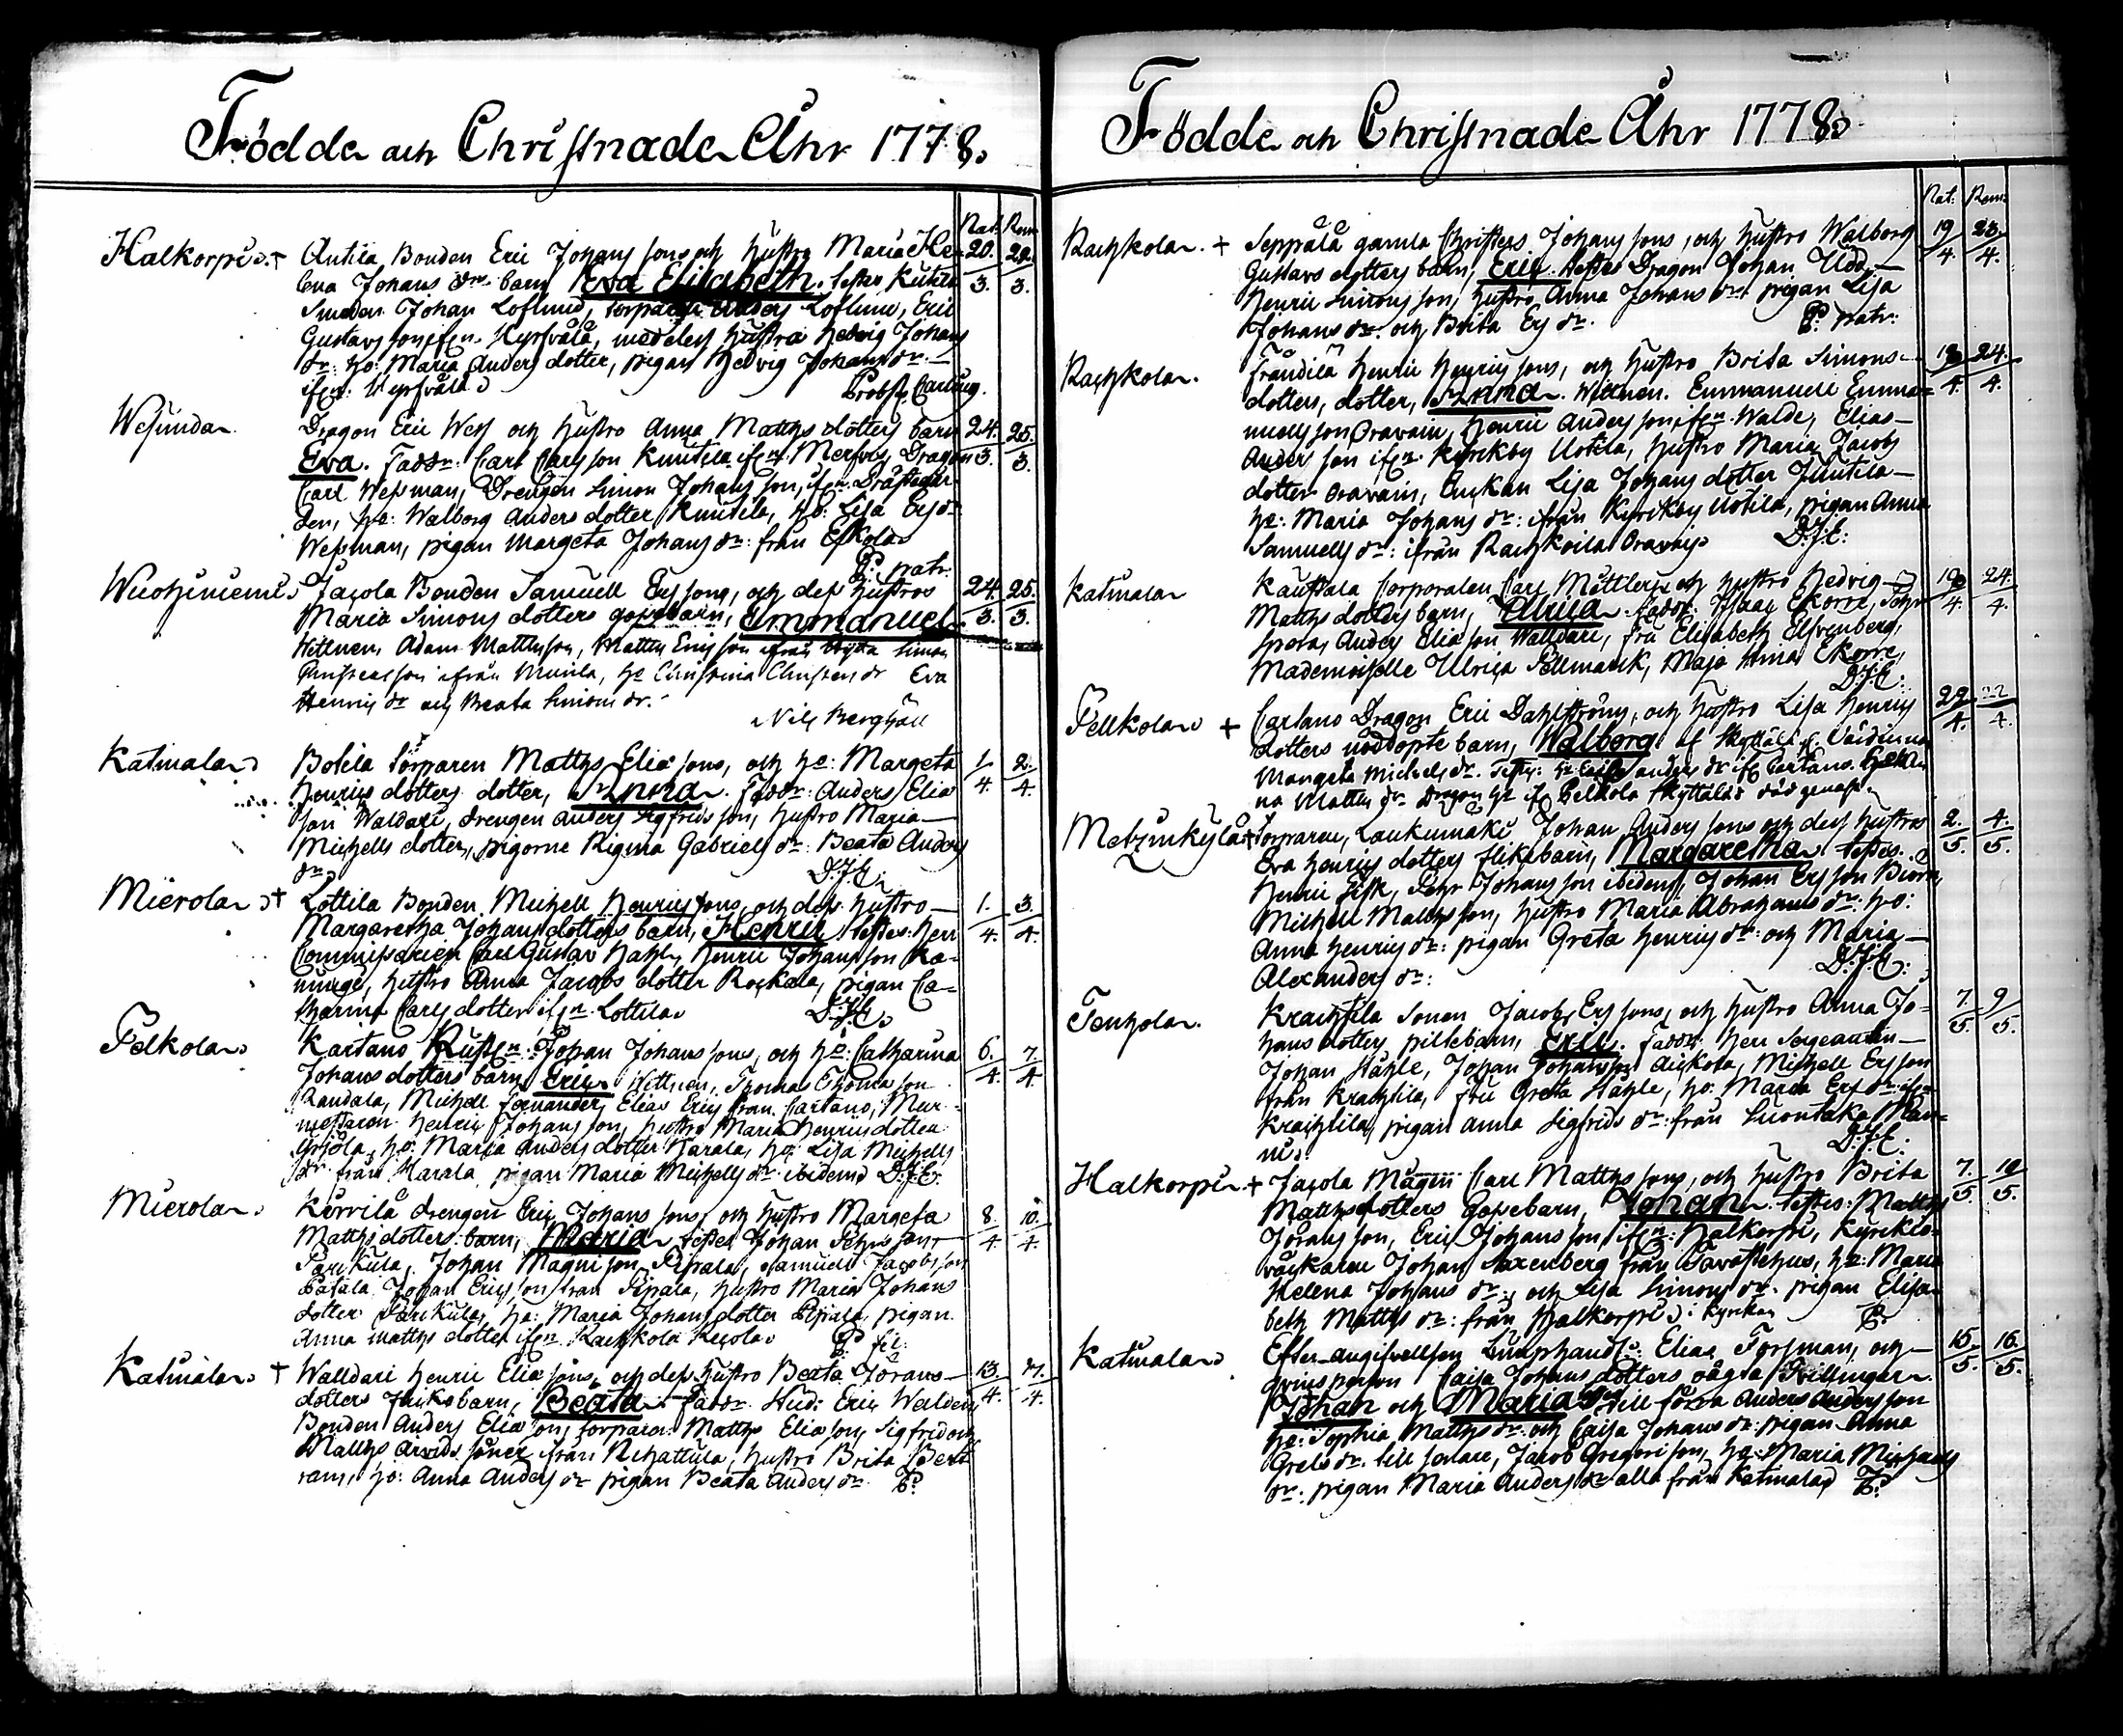 Födde och Christnade Åhr 1778.
Nat. Ren.
Halkorpi. + Antila Bonden Eric Johans sons och hustro Maria He- 20. 22.
lena Johans dr. barn Eva Elisabeth. testes Kutila 3. 3.
Smeden Johan Loflund, torparen Anders Loflund, Eric
Gustavs son ifrn. med dess hustru Hedvig Johans
dr. ho: Maria Anders dotter, pigan Hedvig Johans dr.
ifrn. Probst Carling.
Wesunda. Dragon Eric Wess och hustro Anna Matths dotters barn 24. 25.
Eva. Faddr. Carl Carls son Knutila ifrn. Mervis, Dragon 3. 3.
Carl Wessman, Drengen Simon Johans son, ifrn. Prästegår-
den, ho: Walborg Anders dotter Knutila, ho: Lisa Ers dr
Wessman, pigan Margeta Johans dr: från Eskola
P: natr.
Wuohiniemi. Jacola Bonden Samuell Ers sons, och dess hustros 24. 25.
Maria Simons dotters gossebarn, Emmanuel. 3. 3.
Wittnen Adam Mattsson, Matts Ericsson ifrån Simon
ifrån Munila, ho Christina Christers dr Eva
Henrics dr och Beata Simons dr.
Nils Berghäll
Katinala. Botila torparen Matths Elia sons, och ho: Margeta 1. 2.
Henrics dotters dotter, Anna. Faddr: Anders Elia 4. 4.
son Waldari, drengen Anders Sigfrids son, hustro Maria
Michells dotter, pigorne Rigina Gabriels dr: Beata Anders
dr. D.J.E.
Mierola + Lottila Bonden Michell Henrics sons, och dess hustro 1. 3.
Margaretha Johans dotters barn, Henric testes: Herr 4. 4.
Commissarien Carl Gustav Hahl, Henric Johans son Ka-
hustro Anna Jacobs dotter Rockala, pigan Ca-
tharina Carls dotter ifrn. Lottila D.J.E.
Pelkola Kartano Johan Johans sons, och ho: Catharina 6. 7.
Johans dotters barn Eric Wittnen, Thomas Thomason 4. 4.
Randala, Michell Elias Erics från Cartano, Mur-
mestaren Henric Johans son, hustro Maria Henrics dotter
ho: Maria Anders dotter Harala, ho: Lisa Michells
dr från Harala, pigan Maria Michells dr ibidem D.J.E.
Mierola. Kirvilä drengen Eric Johans sons och hustro Margeta 8. 10.
Matths dotters barn, Maria testes Johan Pehrs son 4. 4.
Parikula, Johan Magni son Pipala, Samuell Jacobs son
Johan Erics son från Pipala, hustro Maria Johans
dotter Parikula, ho: Maria Johans dotter Pipala, pigan
Anna Matths dotter ifrn. Rachkola P: fil:
Katinala + Walldari Henric Elia sons, och dess hustro Beata Jörans 13. 17.
dotters flickobarn, Beata. Faddr. Eric Walden 4. 4.
Bonden Anders Eliason, torparen Matths Elia son, Sigfrid och
Matths Arvids söner ifrån Nihattula, hustro Brita Bert
rams, ho: Anna Anders dr pigan Beata Anders dr. P:
Födde och Christnade Åhr 1778.
Nat: Ren:
Rachkola. + Seppälä gamla Christers Johans sons, och hustro Walborg 19 23.
Gustavs dotters barn, Eric. testes Dragon Johan Udd 4. 4.
Henric Simons son, hustro Anna Johans dr. pigan Lisa
Johans dr. och Brita Ers dr. P. natr:
Rachkola. Frandilä Henric Henrics sons, och hustro Brita Simons 24.
dotters, dotter, Anna. Wittnen. Emmanuell Emma- 4. 4.
nuells son Oravain, Henric Anders son ifrn Walde, Elias
Anders son ifrn. Kyrckby Uotila, hustro Maria Jacobs
dotter Oravain, Enckan Lisa Johans dotter Juntila
ho: Maria Johans dr: ifrån Kyrckby Uotila, pigan Anna
Samuells dr: ifrån Rachkoila Oravais D.J.E.
Katinala Kaustala Corporalen Carl Mittlers och hustro Hedvig 24.
Matths dotters barn, Ulrica. Faddr. Isaac Ekorre, John 4. 4.
Spora, Anders Elia son Walldari, fru Elisabeth Elfvenberg,
Mademoiselle Ulrica Pellmark, Maja Stina Ekorre,
D.J.E.
Pellkola + Cartano Dragon Eric Dahlströms, och hustro Lisa Henrics 22 22
dotters nöddöpte barn, Walborg af Skyttälä 4. 4.
Margeta Michels dr. Testes: Anders dr ifr Cartano.
na Matths dr Dragon ho ifr Pelkola Skyttälä död genast.
Metzänkylä + Torparen, Laukumäki Johan Anders sons och dess hustros 2. 4.
Eva Henrics dotters flickebarn, Margaretha testes. 5. 5.
Henric Fisk, Pehr Johans son ibidem, Johan Ers son Biörn,
Michell Matths son, hustro Maria Abrahams dr. ho:
Anna Henrics dr: pigan Greta Henrics dr: och Maria
Alexanders dr: D.J.E.
Tenhola. Krachtila Sonen Jacobs Ers sons, och hustro Anna Jo- 7. 9
hans dotters piltebarn, Eric. Faddr. Herr Sergeanten 5. 5.
Johan Ståhle, Johan Johans son Aickola, Michell Ers son
från Krachtila, fru Greta Ståhle, ho: Maria Ers dr:
Krachtila, pigan Anna Sigfrids dr: från Suontaka
D.J.E.
Halkorpi. + Jacola Mågen Carl Matths sons, och hustro Brita 7. 10
Matths dotters gossebarn, Johan testes: Matths 5. 5.
Jörans son, Eric Johans son ifrn: Halkorpi, Kyrckio-
väcktaren Johan Saxenberg från Tavastehus, ho: Maria
Helena Johans dr. och Lisa Simons dr. pigan Elisa-
beth Matths dr: från Halkorpi i Kyrckan P.
Katinala Efter angifvellsen Elias Forsman, och 15. 16.
qvinsperson Caisa Johans dotters oägta Tvillingar 5. 5.
Johan och Maria till förra Anders Anders son
ho: Sophia Matths dr. och Caisa Johans dr. pigan Anna
Grels dr. till senare, Jacob Gregori son, ho: Maria Michaels
dr: pigan Maria Anders dr alla från Katinala P.